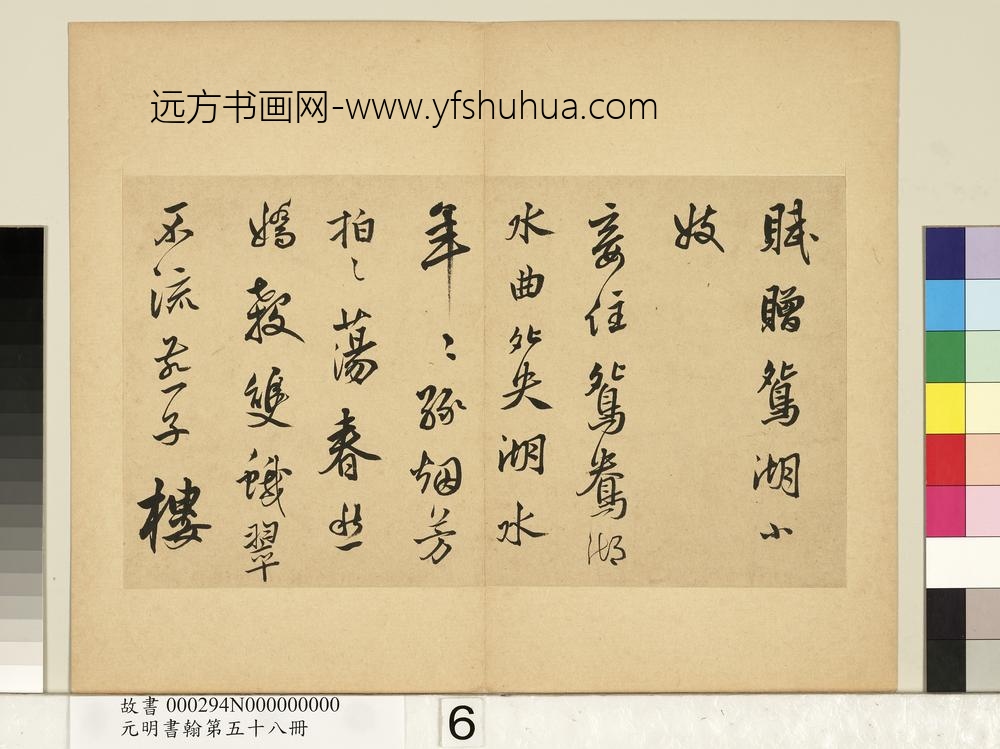 远方书画网-www.yfshuhua.com
賦贈鴛湖小
妓
妾住鴛鴦湖
水曲夗央湖水
年〻綠烟芳
拍〻蕩春
嬌教雙蛾翠
不流子樓
故書 000294N000000000
元明書翰第五十八冊
6